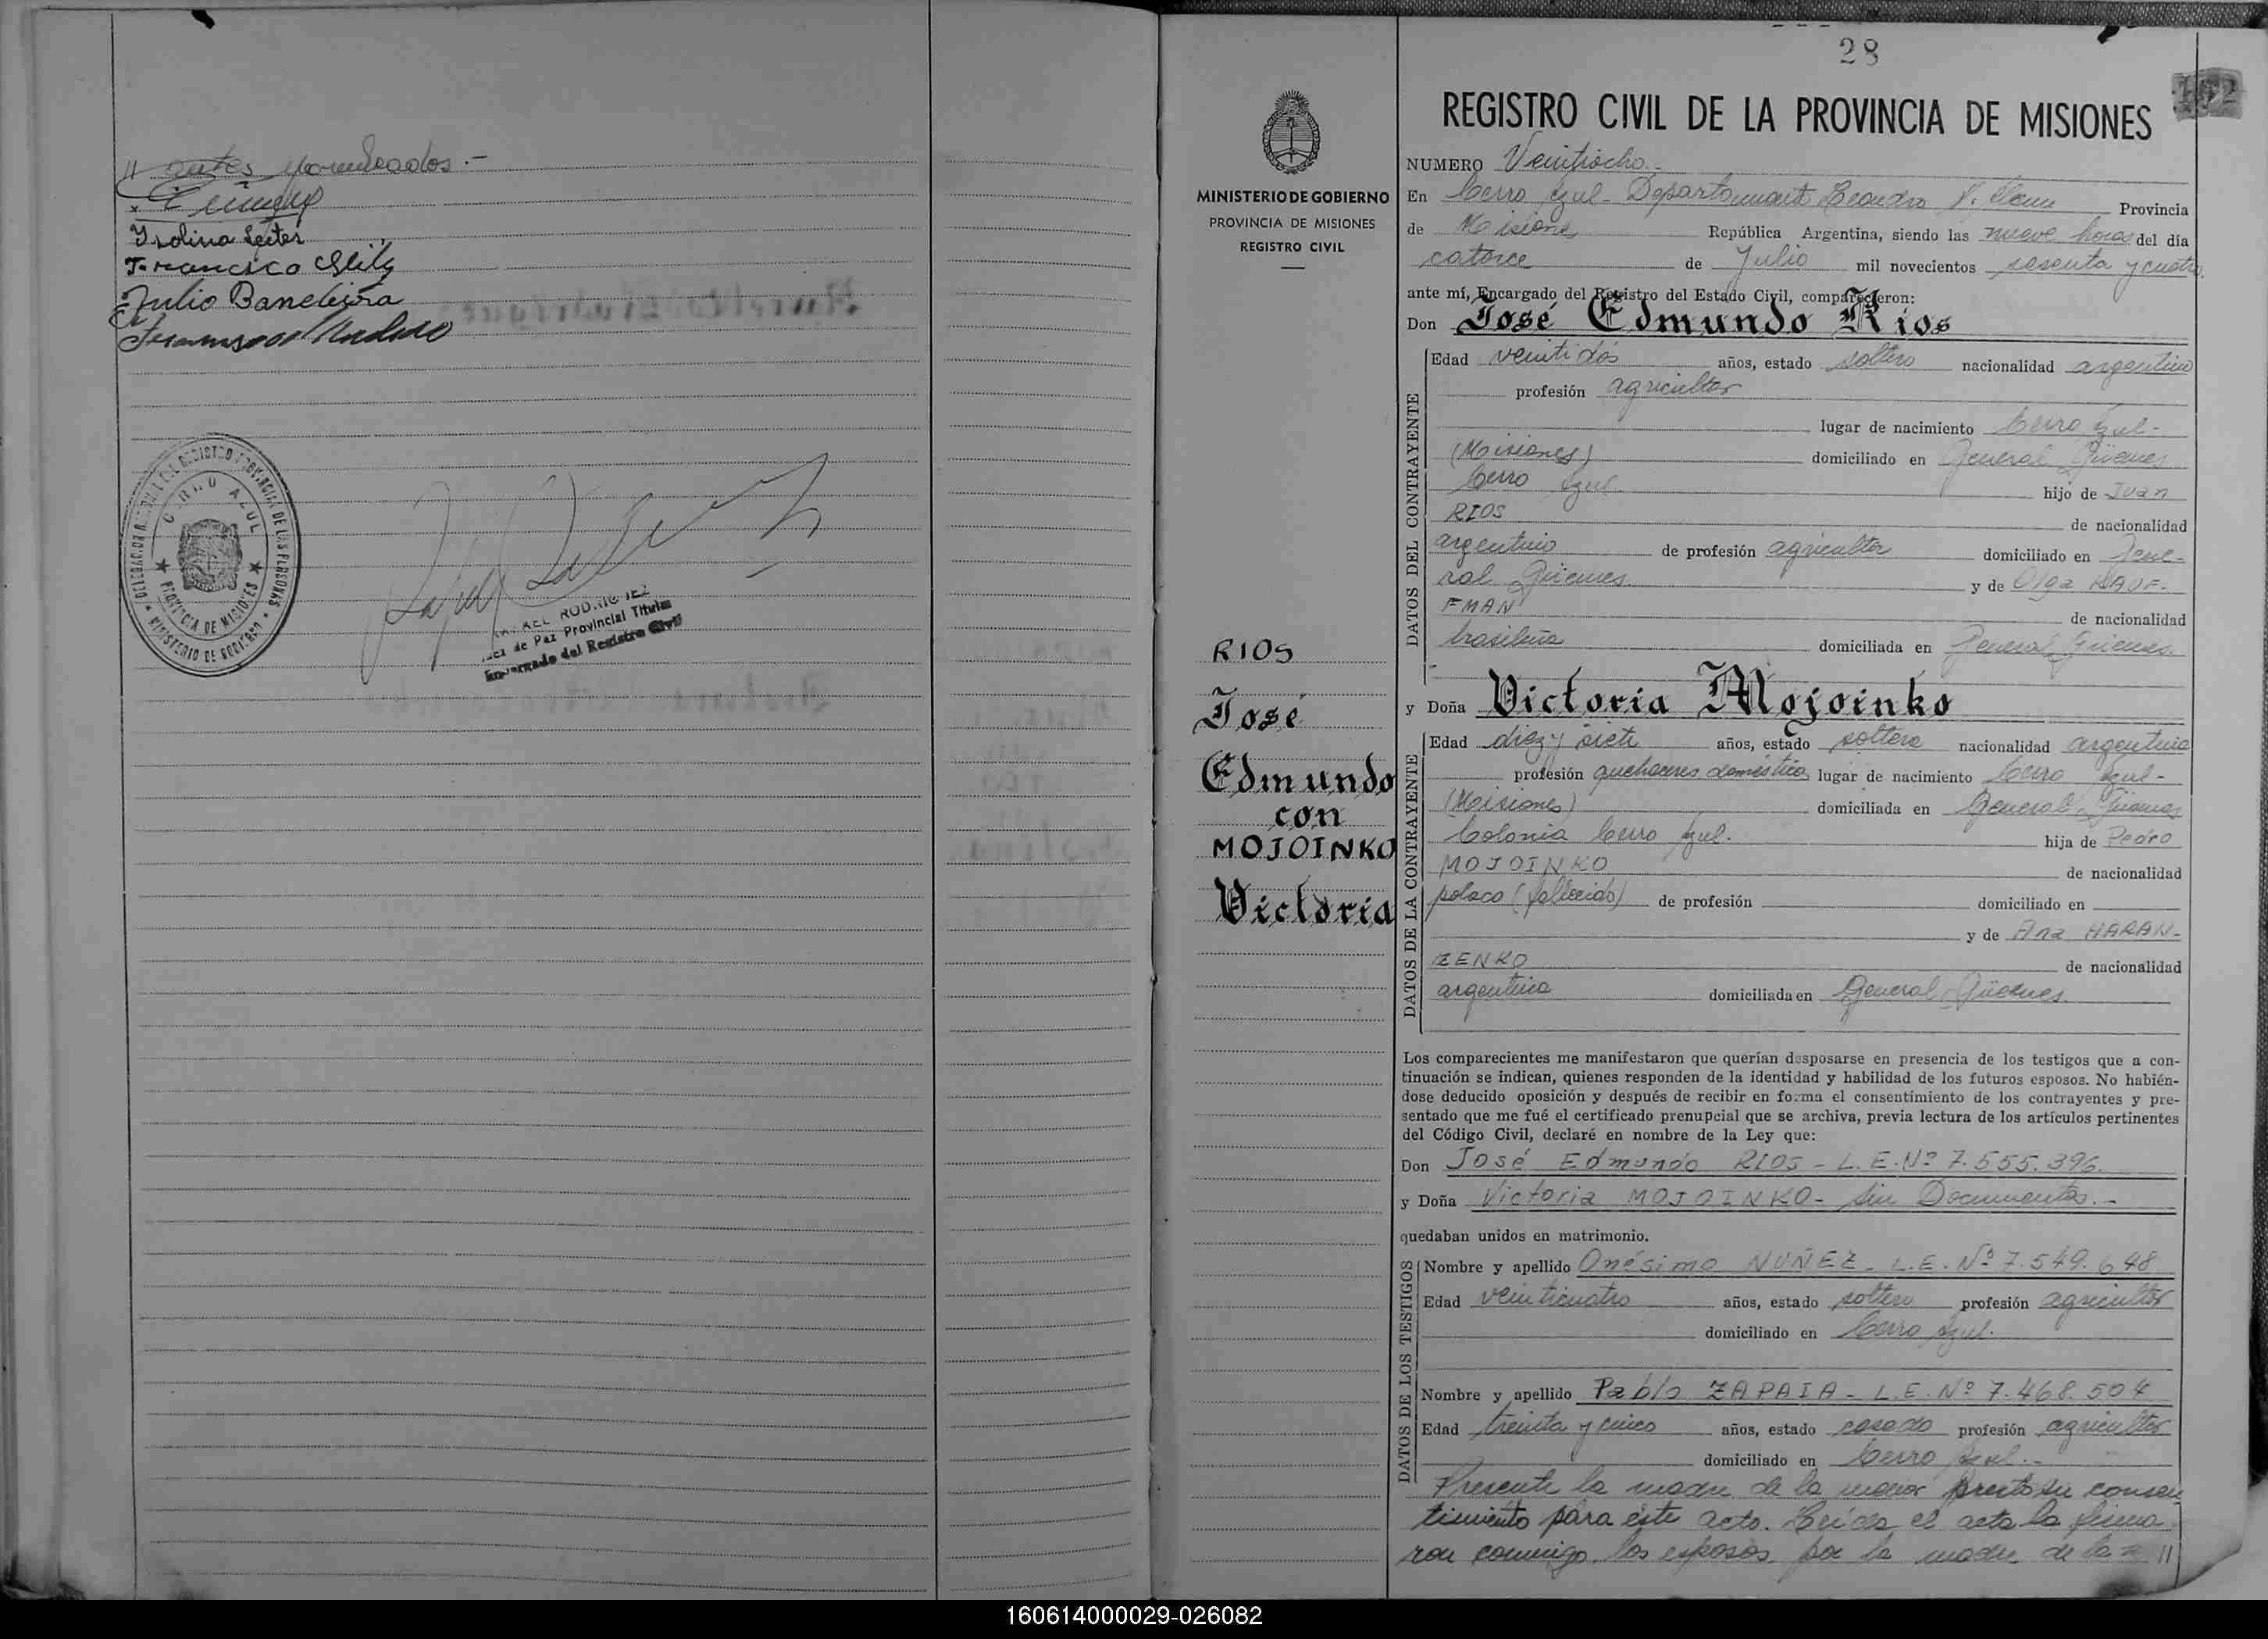 // antes nombrados.-
Isolina Leites
Francisco
Julio Bandeira
CERRO AZUL
PROVINCIA DE MISIONES
MINISTERIO DE GOBIERNO
RAFAEL RODRIGUEZ
Juez de Paz Provincial Titular
Encargado del Registro Civil
28
MINISTERIO DE GOBIERNO
PROVINCIA DE MISIONES
REGISTRO CIVIL
RIOS
José
Edmundo
con
MOJOINKO
Victoria
REGISTRO CIVIL DE LA PROVINCIA DE MISIONES
NUMERO Veintiocho.-
En Cerro Azul - Departamento Leandro N. Alem Provincia
de Misiones República Argentina, siendo las nueve horas del día
catorce de Julio mil novecientos sesenta y cuatro,
ante mí, Encargado del Registro del Estado Civil, comparecieron:
Don José Edmundo Rios
DATOS DEL CONTRAYENTE
Edad veintidós años, estado soltero nacionalidad argentino
profesión agricultor
lugar de nacimiento Cerro Azul -
(Misiones) domiciliado en General Güemes
Cerro Azul. hijo de Juan
RIOS de nacionalidad
argentino de profesión agricultor domiciliado en Gene-
ral Güemes y de Olga KAUF-
FMAN de nacionalidad
brasileña domiciliada en General Güemes.
y Doña Victoria Mojoinko
DATOS DE LA CONTRAYENTE
Edad diez y siete años, estado soltera nacionalidad argentina
profesión quehaceres domésticos lugar de nacimiento Cerro Azul -
(Misiones) domiciliada en General Güemes
Colonia Cerro Azul. hija de Pedro
MOJOINKO de nacionalidad
polaco (fallecido) de profesión domiciliado en
y de Ana HARAN-
ZENKO de nacionalidad
argentina domiciliada en General Güemes.
Los comparecientes me manifestaron que querían desposarse en presencia de los testigos que a con-
tinuación se indican, quienes responden de la identidad y habilidad de los futuros esposos. No habién-
dose deducido oposición y después de recibir en forma el consentimiento de los contrayentes y pre-
sentado que me fué el certificado prenupcial que se archiva, previa lectura de los artículos pertinentes
del Código Civil, declaré en nombre de la Ley que:
Don José Edmundo RIOS - L.E. Nº 7.555.396.
y Doña Victoria MOJOINKO - Sin Documentos.-
quedaban unidos en matrimonio.
DATOS DE LOS TESTIGOS
Nombre y apellido Onésimo NUÑEZ - L.E. Nº 7.549.648
Edad veinticuatro años, estado soltero profesión agricultor
domiciliado en Cerro Azul.
Nombre y apellido Pablo ZAPAIA - L.E. Nº 7.468.504
Edad treinta y cinco años, estado casado profesión agricultor
domiciliado en Cerro Azul.-
Presente la madre de la menor presta su consen
timiento para éste acto. Leída el acta la firma
ron conmigo. los esposos. por la madre de la //
160614000029-026082